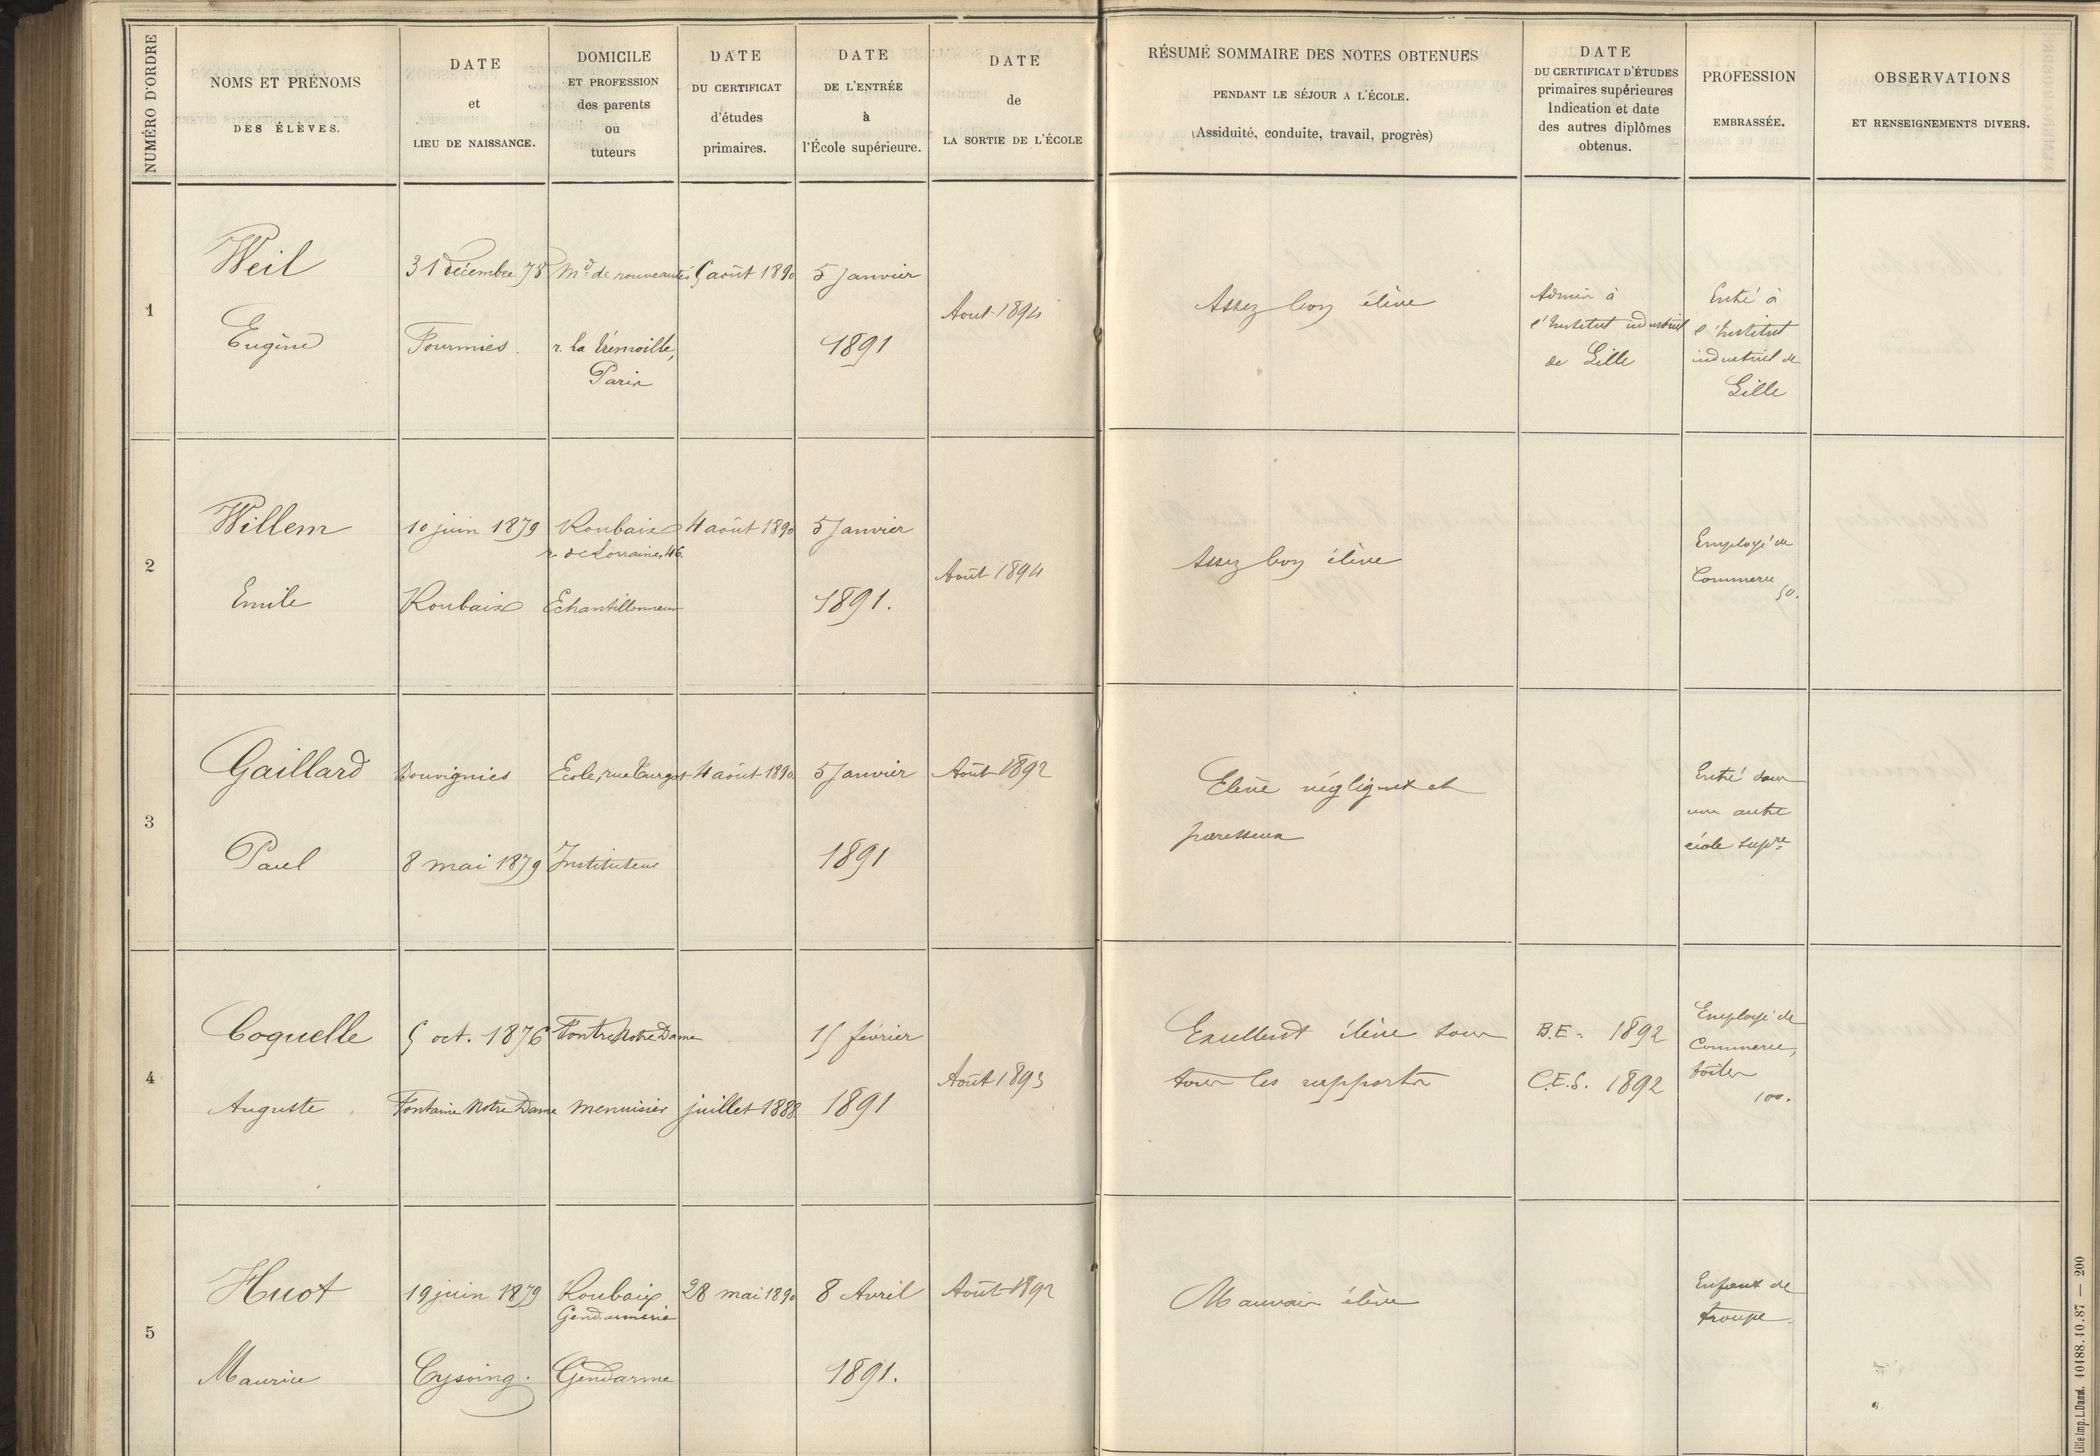 NUMÉRO D'ORDRE
NOMS ET PRÉNOMS
DES ÉLÈVES.
DATE
et
LIEU DE NAISSANCE.
DOMICILE
ET PROFESSION
des parents
ou
tuteurs
DATE
DU CERTIFICAT
d'études
primaires.
DATE
DE L'ENTRÉE
à
l'École supérieure.
DATE
de
LA SORTIE DE L'ÉCOLE
RÉSUMÉ SOMMAIRE DES NOTES OBTENUES
PENDANT LE SÉJOUR A L'ÉCOLE.
(Assiduité, conduite, travail, progrès)
DATE
DU CERTIFICAT D'ÉTUDES
primaires supérieures
Indication et date
des autres diplômes
obtenus.
PROFESSION
EMBRASSÉE.
OBSERVATIONS
ET RENSEIGNEMENTS DIVERS.
1
Weil
Eugène
31 décembre 78
Fourmies.
Md de nouveautés
r. La Trémoille,
Paris
5 août 1890
5 Janvier
1891
Aout 1894
Assez bon élève
Admis à
l'Institut industriel
de Lille
Entré à
l'Institut
industriel de
Lille
2
Willem
Emile
10 juin 1879
Roubaix
Roubaix
r. de Lorraine, 46.
Echantillonneur
4 août 1890
5 Janvier
1891.
Août 1894
Assez bon élève
Employé de
Commerce
50.
3
Gaillard
Paul
Bouvignies
8 mai 1879
Ecole, rue Turgot
Instituteur
4 août 1890
5 Janvier
1891
Août 1892
Elève négligent et
paresseux
Entré dans
une autre
école supre
4
Coquelle
Auguste
5 oct. 1876
Fontaine Notre Dame
Fontne Notre Dame
menuisier
juillet 1888
15 février
1891
Août 1893
Excellent élève sous
tous les rapports
B.E. 1892
C.E.S. 1892
Employé de
Commerce,
100.
5
Huot
Maurice
19 juin 1879
Cysoing.
Roubaix
Gendarmerie
Gendarme
28 mai 1890
8 Avril
1891.
Août 1892
Mauvais élève
Enfant de
troupe.
Lille Imp. L. Danel. 40188.10.87 — 200